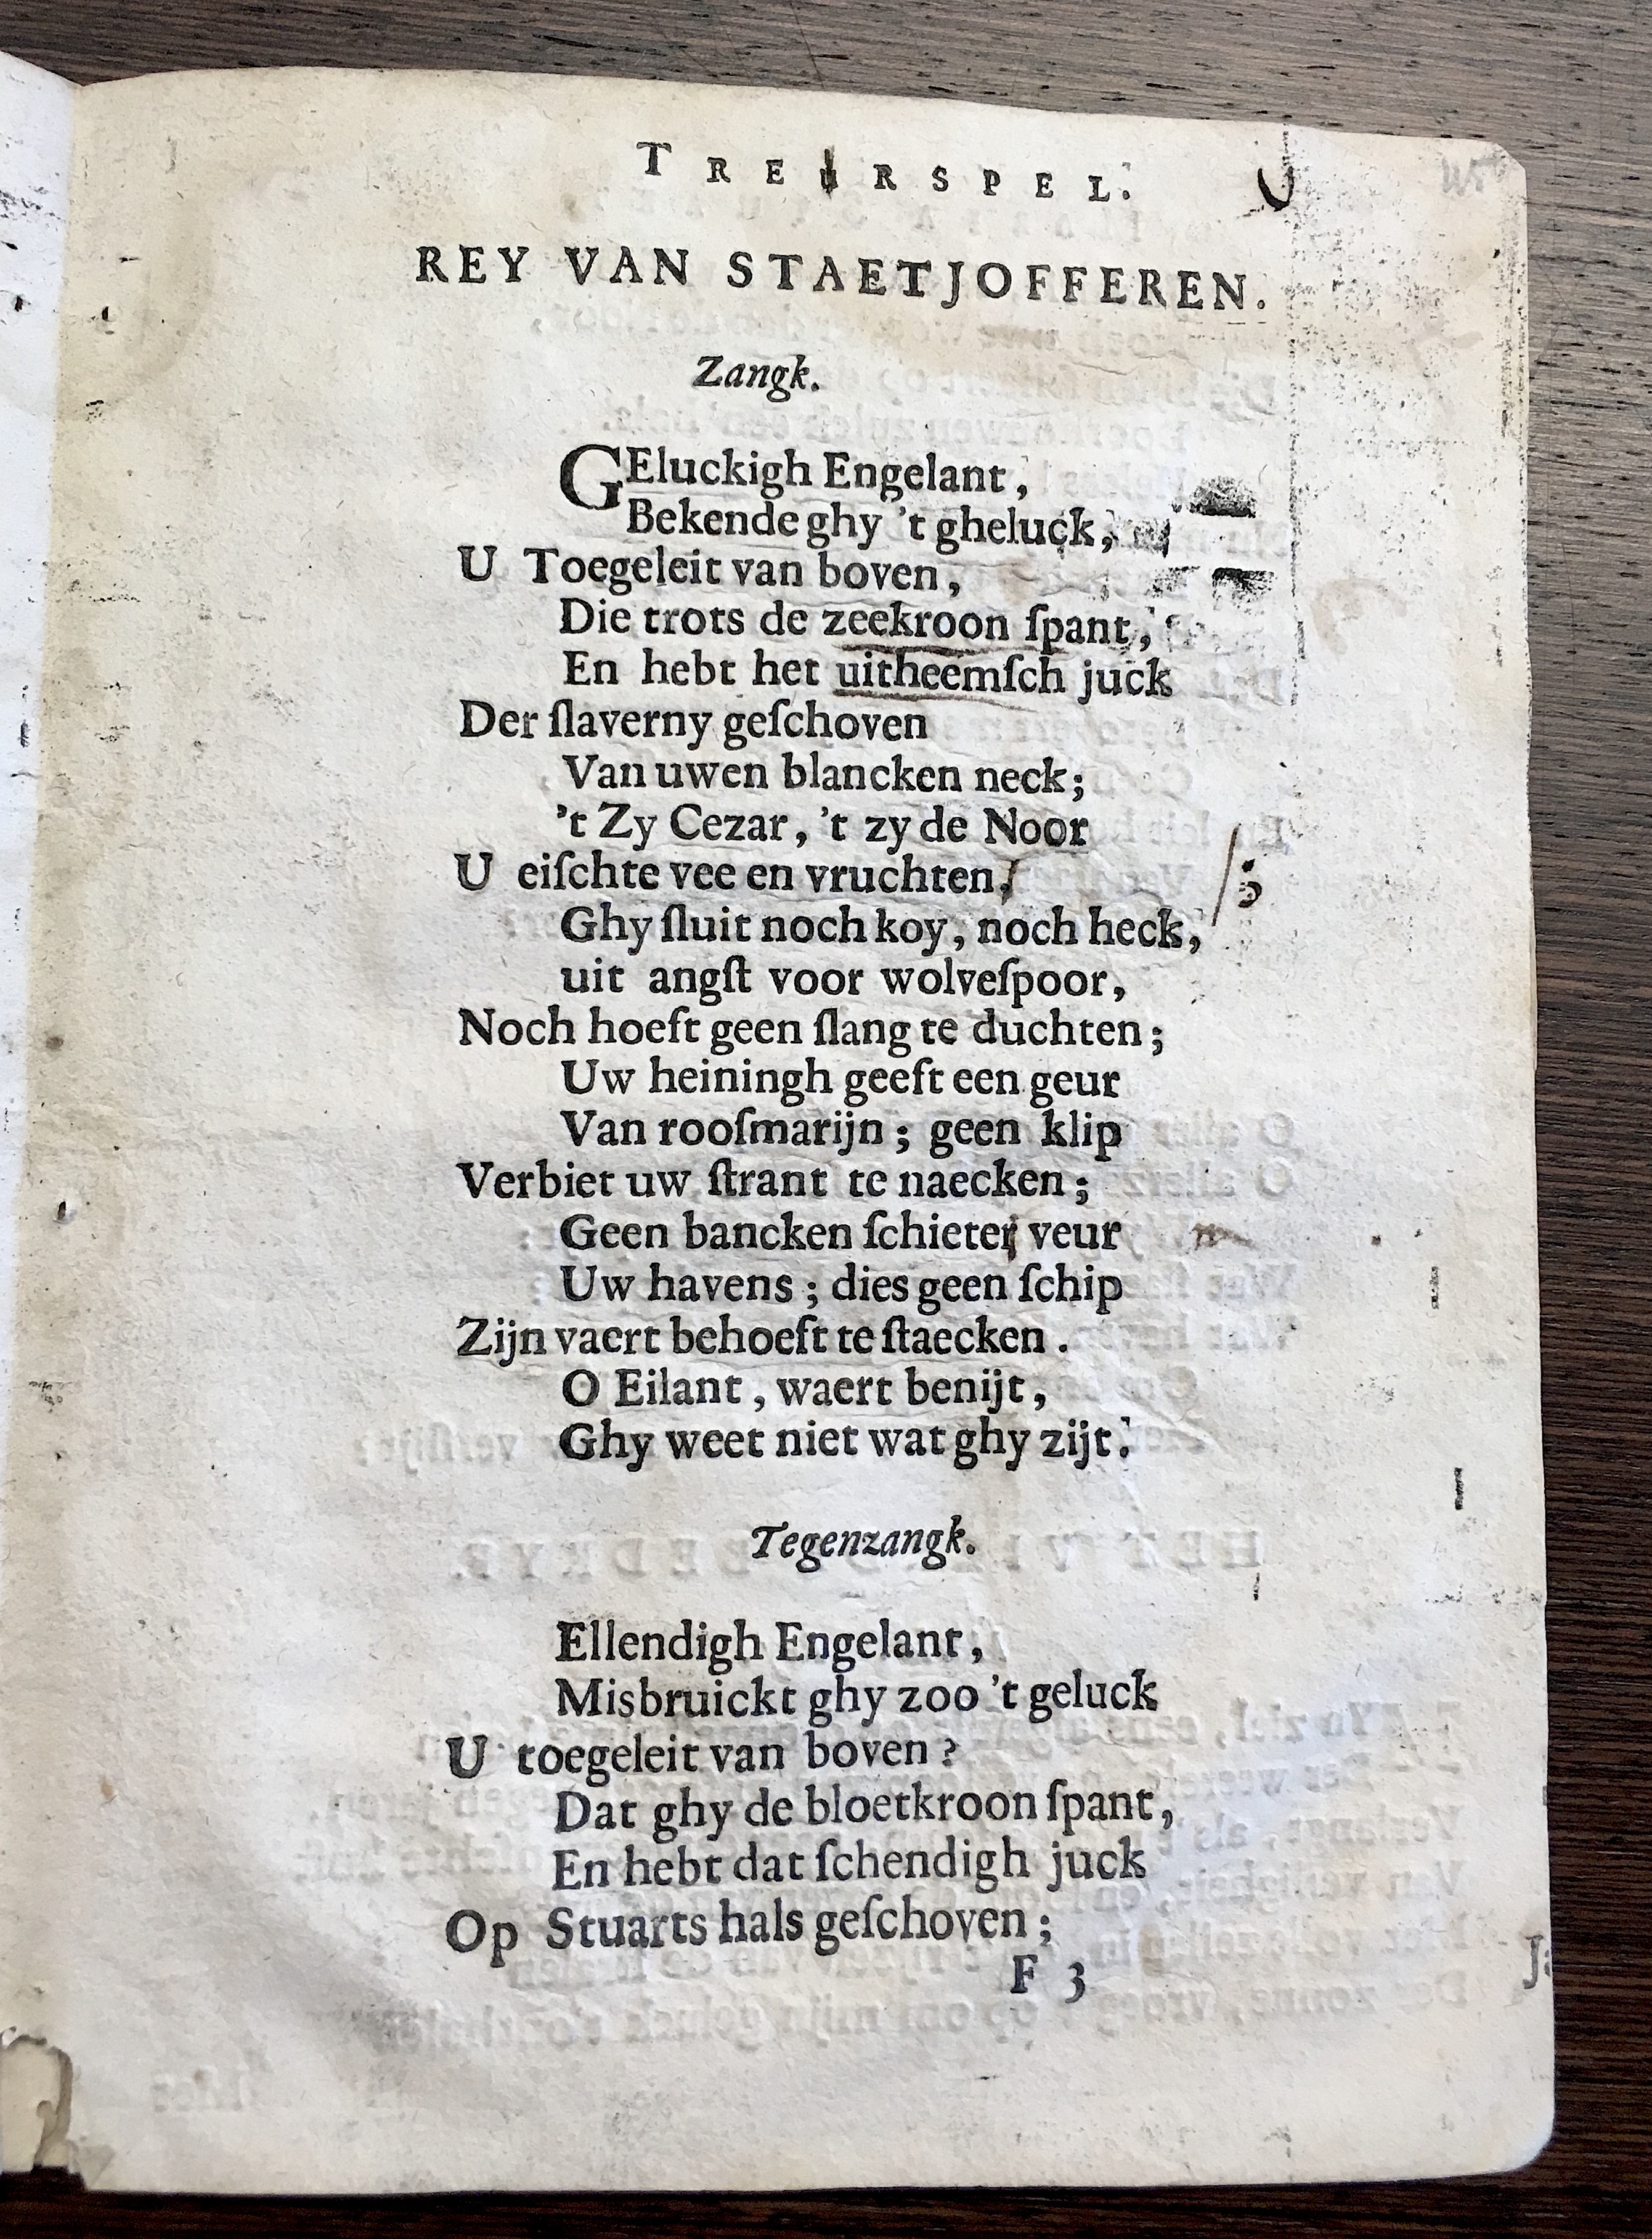 TREURSPEL.
REY VAN STAETJOFFEREN.
Zangk.
GEluckigh Engelant,
Bekende ghy 't gheluck,
U Toegeleit van boven,
Die trots de zeekroon ſpant,
En hebt het uitheemſch juck
Der ſlaverny geſchoven
Van uwen blancken neck;
't Zy Cezar, 't zy de Noor
U eiſchte vee en vruchten,
Ghy ſluit noch koy, noch heck,
uit angſt voor wolveſpoor,
Noch hoeft geen ſlang te duchten;
Uw heiningh geeft een geur
Van rooſmarijn; geen klip
Verbiet uw ſtrant te naecken;
Geen bancken ſchieter veur
Uw havens; dies geen ſchip
Zijn vaert behoeft te ſtaecken.
O Eilant, waert benijt,
Ghy weet niet wat ghy zijt.
Tegenzangk.
Ellendigh Engelant,
Misbruickt ghy zoo 't geluck
U toegeleit van boven?
Dat ghy de bloetkroon ſpant,
En hebt dat ſchendigh juck
Op Stuarts hals geſchoven;
F 3